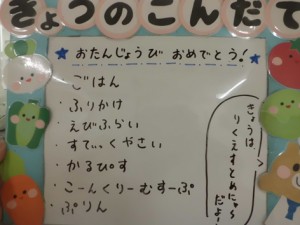 きょうのこんだて
★おたんじょうび おめでとう!★
ごはん
・ふりかけ
・えびふらい
・すてぃっくやさい
・かるぴす
・こーんくりーむすーぷ
・ぷりん
きょうは
りくえすとめにゅー
だよ!